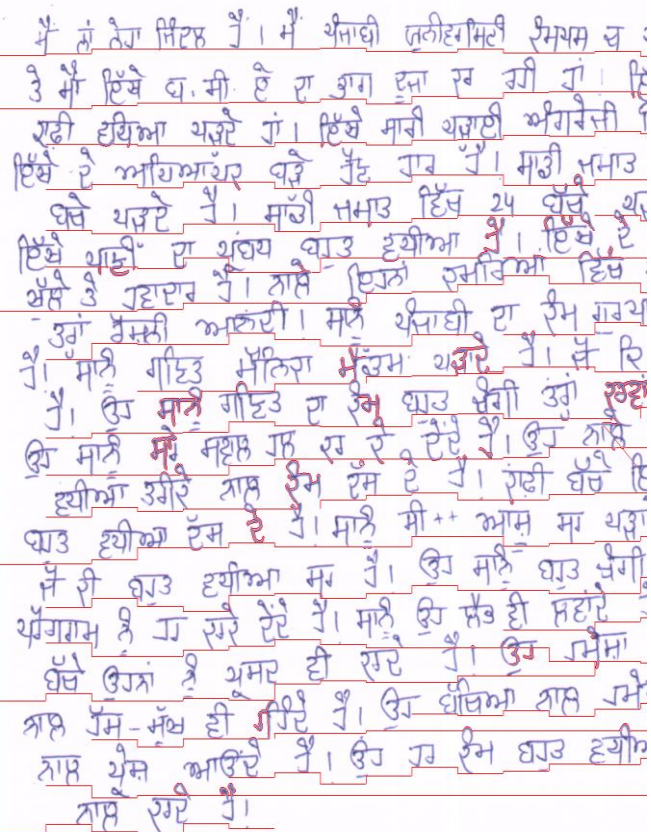 ਮੈਂ ਨਾਂ ਨੇਹਾ ਜਿੰਦਲ ਹੈ। ਮੈਂ ਪੰਜਾਬੀ ਯੂਨੀਵਰਸਿਟੀ ਕੈਮਪਸ ਚ
ਤੇ ਮੈਂ ਇੱਥੇ ਬੀ. ਸੀ. ਏ ਦਾ ਭਾਗ ਦੂਜਾ ਕਰ ਰਹੀ ਹਾਂ।
ਕਾਫੀ ਵਧੀਆ ਪੜਦੇ ਹਾਂ। ਇੱਥੇ ਸਾਰੀ ਪੜਾਈ ਅੰਗਰੇਜੀ
ਇੱਥੇ ਦੇ ਅਧਿਆਪਕ ਬੜੇ ਹਨ। ਸਾਡੀ ਜਮਾਤ
ਬੱਚੇ ਪੜਦੇ ਹੈ। ਸਾਡੀ ਜਮਾਤ ਵਿੱਚ 24 ਬੱਚੇ
ਇੱਥੇ ਪਾਣੀ ਦਾ ਪ੍ਰਬੰਧ ਬਹੁਤ ਵਧੀਆ ਹੈ। ਇੱਥੇ ਦੇ
ਖੁੱਲੇ ਤੇ ਹਵਾਦਾਰ ਹੈ। ਨਾਲੇ ਇਹਨਾਂ ਕਮਰਿਆਂ ਵਿੱਚ
ਤਰਾਂ ਰੌਸ਼ਨੀ ਆਉਂਦੀ। ਸਾਨੂੰ ਪੰਜਾਬੀ ਦਾ ਕੰਮ
ਹੈ। ਸਾਨੂੰ ਗਣਿਤ ਮੋਨਿਕਾ ਮੈਡਮ ਪੜਾਦੇ ਹੈ। ਜੋ ਕਿ
ਹੈ। ਉਹ ਸਾਨੂੰ ਗਣਿਤ ਦਾ ਕੰਮ ਬਹੁਤ ਚੰਗੀ ਤਰਾਂ
ਉਹ ਸਾਨੂੰ ਸਾਰੇ ਸਵਾਲ ਹਲ ਕਰ ਕੇ ਦੇਂਦੇ ਹੈ। ਉਹ ਨਾਲੇ
ਵਧੀਆ ਤਰੀਕੇ ਨਾਲ ਕੰਮ ਦੱਸ ਦੇ ਹੈ। ਕਾਫੀ ਬੱਚੇ
ਬਹੁਤ ਵਧੀਆ ਦੱਸ ਦੇ ਹੈ। ਸਾਨੂੰ ਸੀ++ ਸਰ
ਜੋ ਕੀ ਬਹੁਤ ਵਧੀਆ ਸਰ ਹੈ। ਉਹ ਸਾਨੂੰ ਬਹੁਤ ਚੰਗੀ
ਪ੍ਰੋਗਰਾਮ ਨੂੰ ਹਰ ਕਰਕੇ ਦੇਂਦੇ ਹੈ। ਸਾਨੂੰ ਉਹ ਲੈਬ ਵੀ ਲਵਾਂਦੇ
ਬੱਚੇ ਉਹਨਾਂ ਨੂੰ ਪਸੰਦ ਵੀ ਕਰਦੇ ਹੈ। ਉਹ ਹਮੇਸ਼ਾ
ਨਾਲ ਹੱਸ-ਮੁੱਖ ਵੀ ਰਹਿੰਦੇ ਹੈ। ਉਹ ਬੱਚਿਆ ਨਾਲ
ਨਾਲ ਪੇਸ਼ ਆਉਂਦੇ ਹੈ। ਉਹ ਹਰ ਕੰਮ ਬਹੁਤ
ਨਾਲ ਕਰਦੇ ਹੈ।